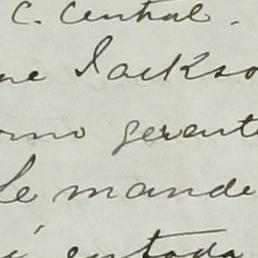 C. Central.
ne Jackso
omo gerente
le mande
í entada